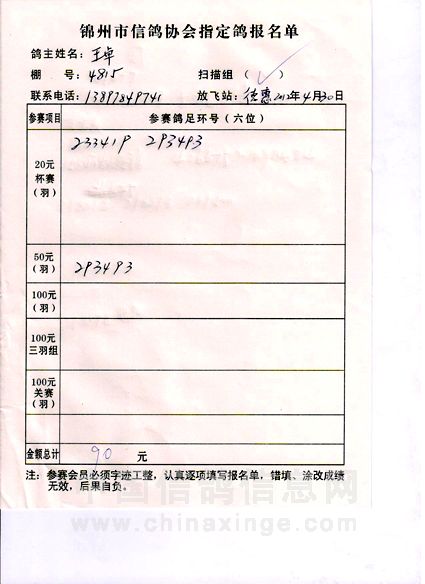 锦州市信鸽协会指定鸽报名单
鸽主姓名：王卓
棚 号：4815 扫描组（ ✓ ）
联系电话：13897849741 放飞站：德惠2012年4月30日
参赛项目 参赛鸽足环号（六位）
20元
杯赛
（羽）
233419 293493
50元
（羽）
293493
100元
（羽）
100元
三羽组
100元
关赛
（羽）
金额总计 90 元
注：参赛会员必须字迹工整，认真逐项填写报名单，错填、涂改成绩
无效，后果自负。
中国信鸽信息网
www.chinaxinge.com